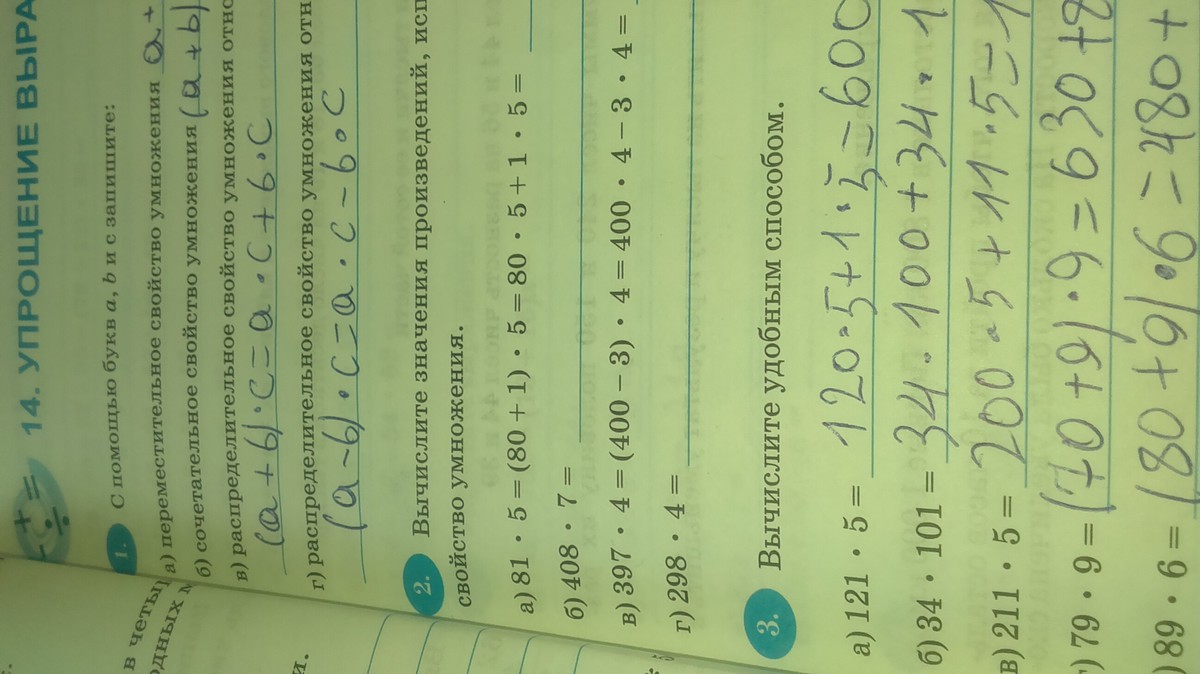 14. УПРОЩЕНИЕ ВЫРА
1. С помощью букв a, b и c запишите:
а) переместительное свойство умножения a +
б) сочетательное свойство умножения (a + b)
в) распределительное свойство умножения отно
(a + b) · c = a · c + b · c
г) распределительное свойство умножения отн
(a - b) · c = a · c - b · c
2. Вычислите значения произведений, исп
свойство умножения.
а) 81 · 5 = (80 + 1) · 5 = 80 · 5 + 1 · 5 =
б) 408 · 7 =
в) 397 · 4 = (400 - 3) · 4 = 400 · 4 - 3 · 4 =
г) 298 · 4 =
3. Вычислите удобным способом.
а) 121 · 5 = 120 · 5 + 1 · 5 = 600
б) 34 · 101 = 34 · 100 + 34 · 1
в) 211 · 5 = 200 · 5 + 11 · 5 = 1
г) 79 · 9 = (70 + 9) · 9 = 630 + 8
) 89 · 6 = (80 + 9) · 6 = 480 +
в четы
одных
и.